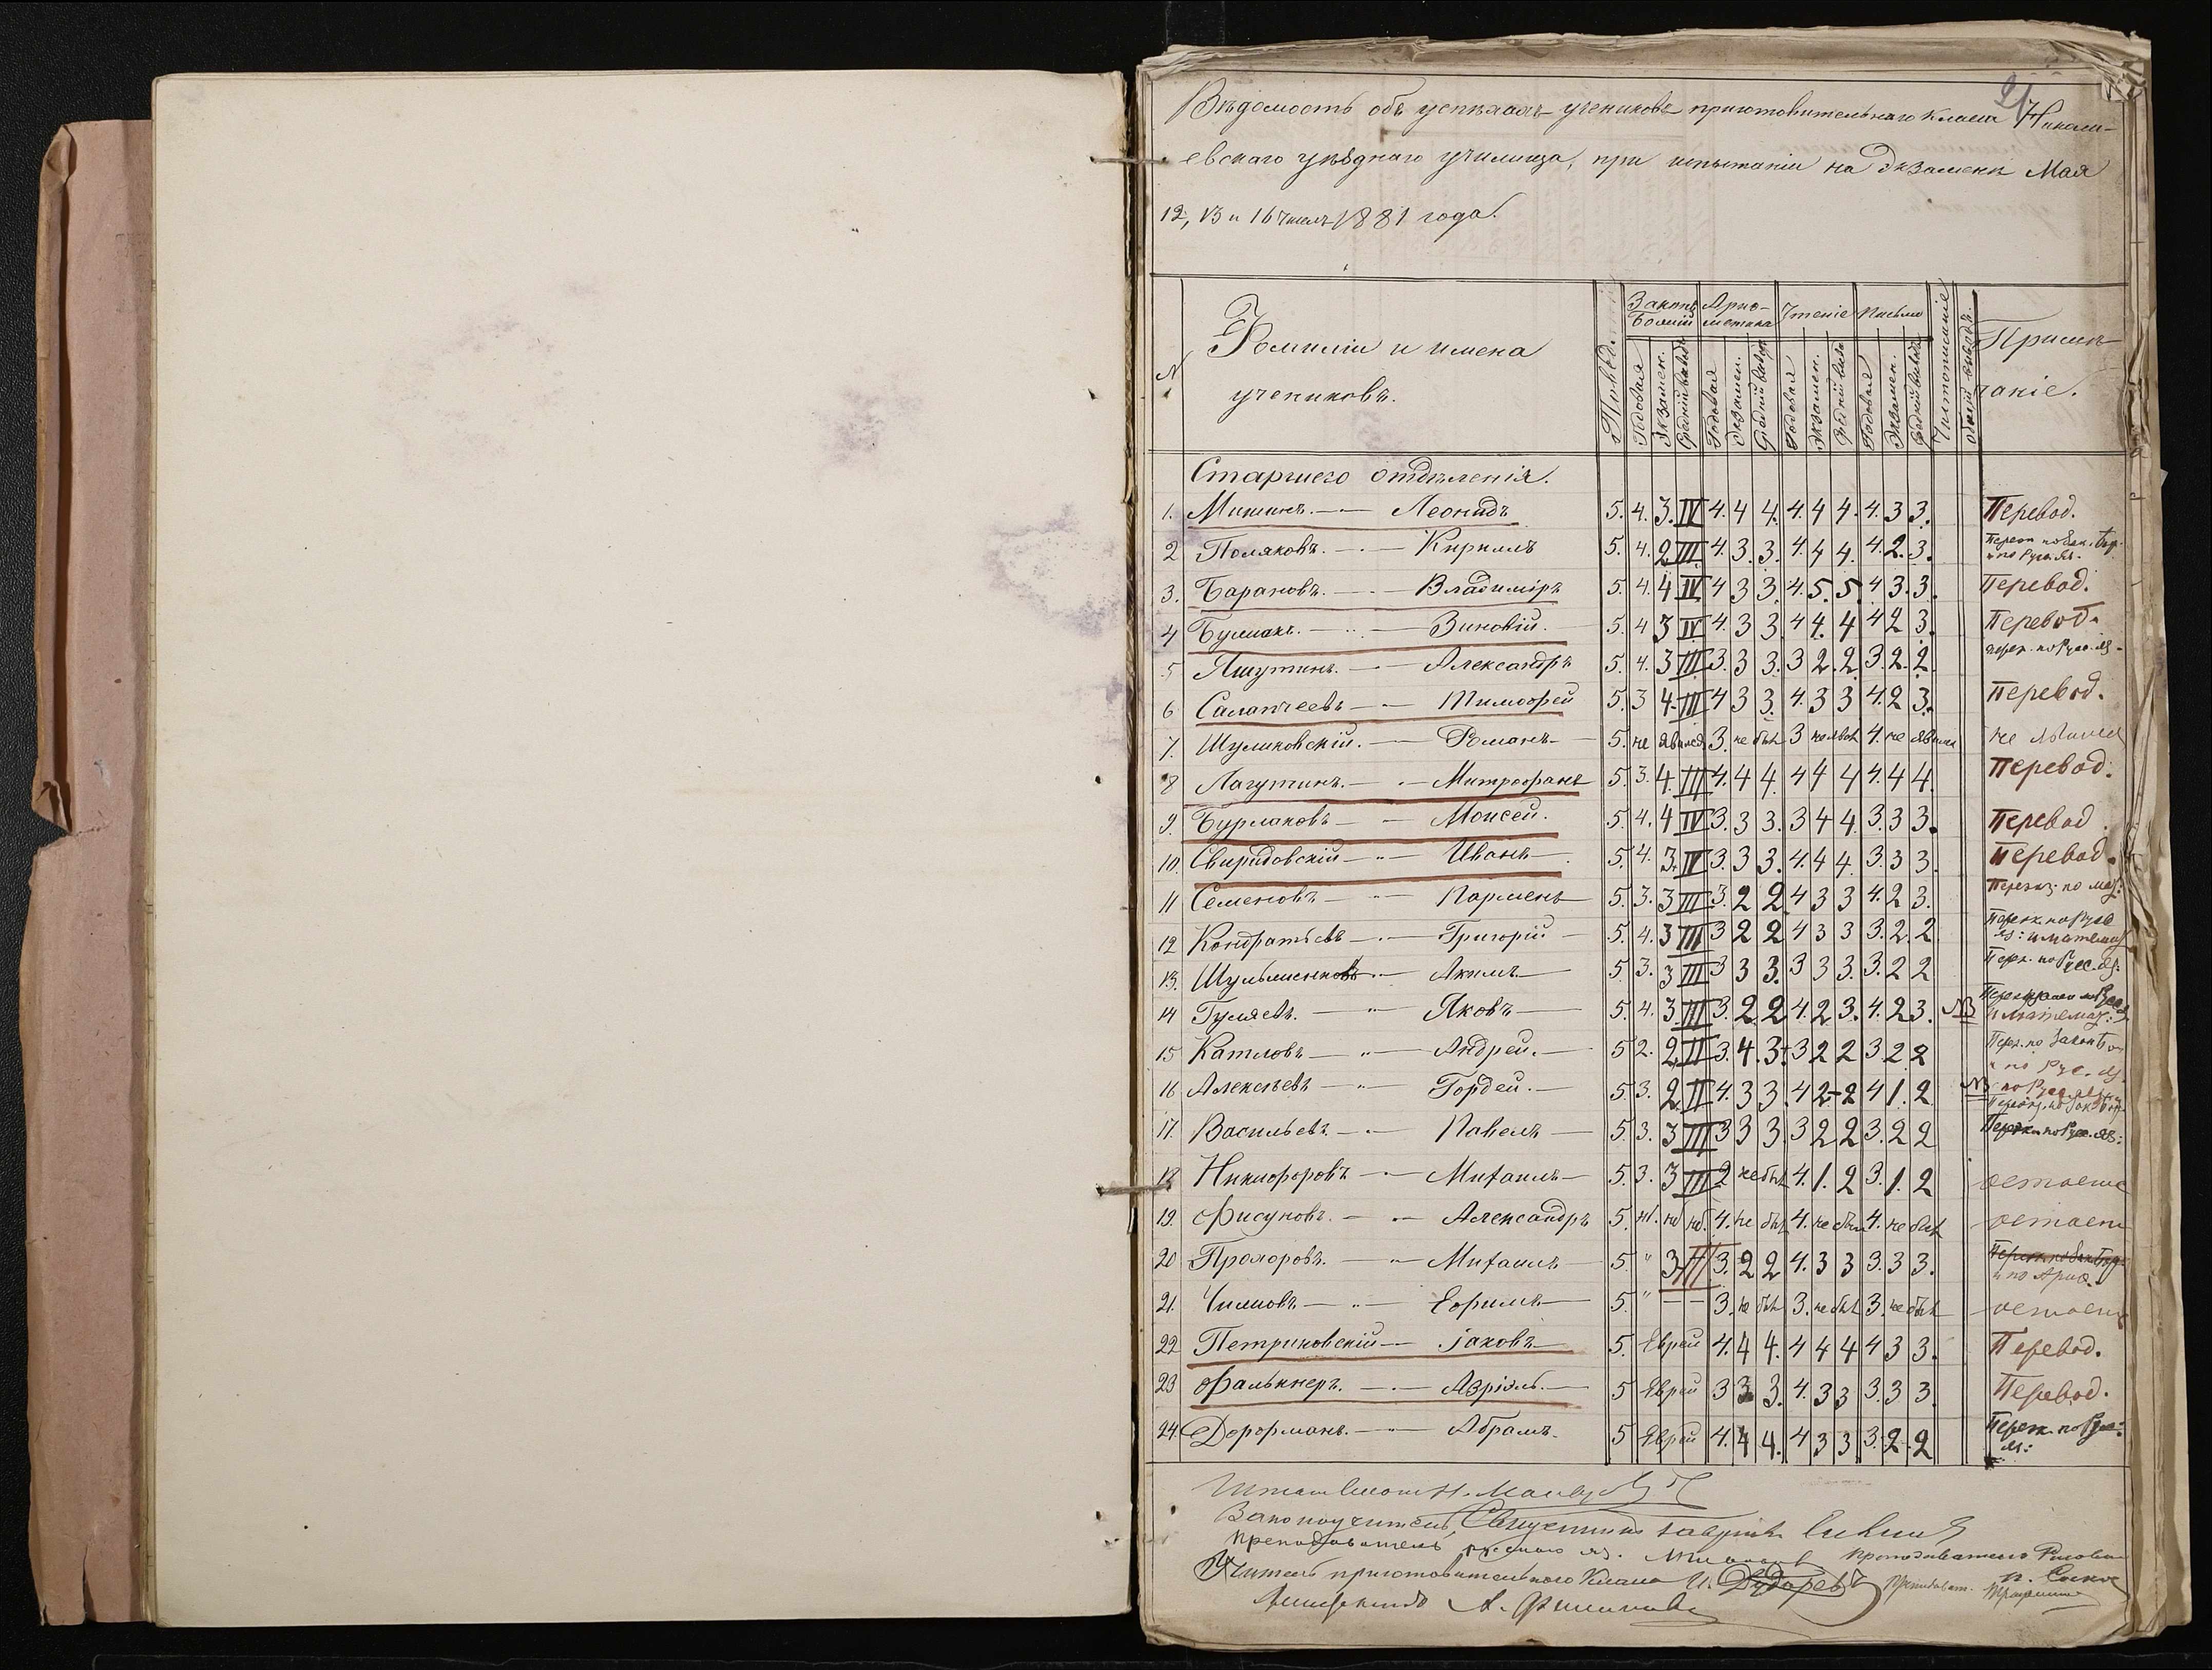 21
Вѣдомость объ успѣхахъ учениковъ приготовительнаго класса Никола-
евскаго уѣзднаго училища, при испытаніи на экзаменѣ Мая
12, 13 и 16 чиселъ 1881 года.
№ Фамиліи и имена учениковъ. Повед. Законъ Божій Ариѳ-метика Чтеніе Письмо Чистописаніе Общій выводъ. Примѣ-чаніе.
Годовая Экзамен. Средній выводъ Годовая Экзамен. Средній вывод Годовая Экзамен. Средній выво Годовая Экзамен. Средній выводъ
Старшего отдѣленія.
1. Мишинъ. — Леонидъ 5. 4. 3. IV 4. 4 4. 4. 4 4. 4. 3 3. Перевод.
2 Поляковъ. — Кирилъ 5. 4. 2 III 4. 3. 3. 4. 4 4. 4. 2. 3. по Русс. яз.
3. Барановъ. — Владиміръ 5. 4. 4 IV 4 3 3. 4. 5. 5. 4 3. 3. Перевод.
4 — Зиновій. 5. 4 3 IV 4. 3 3. 4 4. 4 4 2 3. Перевод.
5 — Александръ 5. 4. 3 III 3. 3 3. 3 2. 2. 3. 2. 2. перек. по Русс. яз.
6 — Тимофей 5. 3 4. III 4 3 3. 4. 3 3 4. 2 3. Перевод.
7. Шуликовскій. — Романъ 5. не явился 3. не былъ 3 не явил 4. не явился не явился
8 Лагутинъ. — Митрофанъ 5. 3. 4. III 4. 4 4. 4 4 4 4. 4 4. Перевод.
9. Бурлаковъ — Моисей. 5. 4. 4 IV 3. 3 3. 3 4 4. 3. 3 3. Перевод.
10. Свиридовскій — Иванъ 5. 4. 3. IV 3. 3 3. 4. 4 4 3. 3 3. Перевод.
11 Семеновъ — Парменъ 5. 3. 3 III 3. 2 2. 4 3 3 4. 2 3. по мат:
12 Кондратьевъ — Григорій 5. 4. 3 III 3 2 2 4 3 3 3. 2. 2. Перек. по Русс яз: и математ
13. Шульменковъ — Акимъ 5. 3. 3 III 3 3 3. 3 3 3. 3. 2 2 Перек. по Русс. яз:
14 Гуляевъ. — Яковъ 5. 4. 3. III 3. 2. 2 4. 2 3. 4. 2 3. NB и математ:
15 Катловъ — Андрей. 5 2. 2. II 3. 4. 3. 3 2 2 3. 2 2 Перек. по Закону и по Рус. яз.
16 Алексѣевъ — Гордей. 5. 3. 2. II 4. 3 3. 4 2 2 4 1. 2 NB по Русс. яз.
17. Васильевъ. — Павелъ 5. 3. 3 III 3 3 3. 3 2 2 3. 2 2 Перек. по Русс. яз:
18 Никифоровъ — Михаилъ 5. 3. 3 III 2 не былъ 4. 1. 2 3. 1. 2 остается
19. Фисуновъ. — Александръ 5. не былъ 4. не был 4. не был 4. не былъ остается
20 Прохоровъ. — Михаилъ 5 " 3 III 3. 2 2 4. 3 3 3. 3 3. и по Ариѳ.
21. — Ефимъ 5. " — — 3. не был 3. не был 3. не былъ остается
22 Петриковскій — Іаковъ 5. Еврей 4. 4 4. 4 4 4 4 3 3. Перевод.
23 Фалькнеръ. — Азріэль. 5 Еврей 3 3 3. 4. 3 3 3. 3 3. Перевод.
24. Дорфманъ. — Абрамъ. 5 Еврей 4. 4 4. 4 3 3 3. 2. 2 Перек. по Русс: яз:
Законоучитель, Священникъ
Преподаватель русскаго яз.
Учитель приготовительнаго класса И. Дударевъ